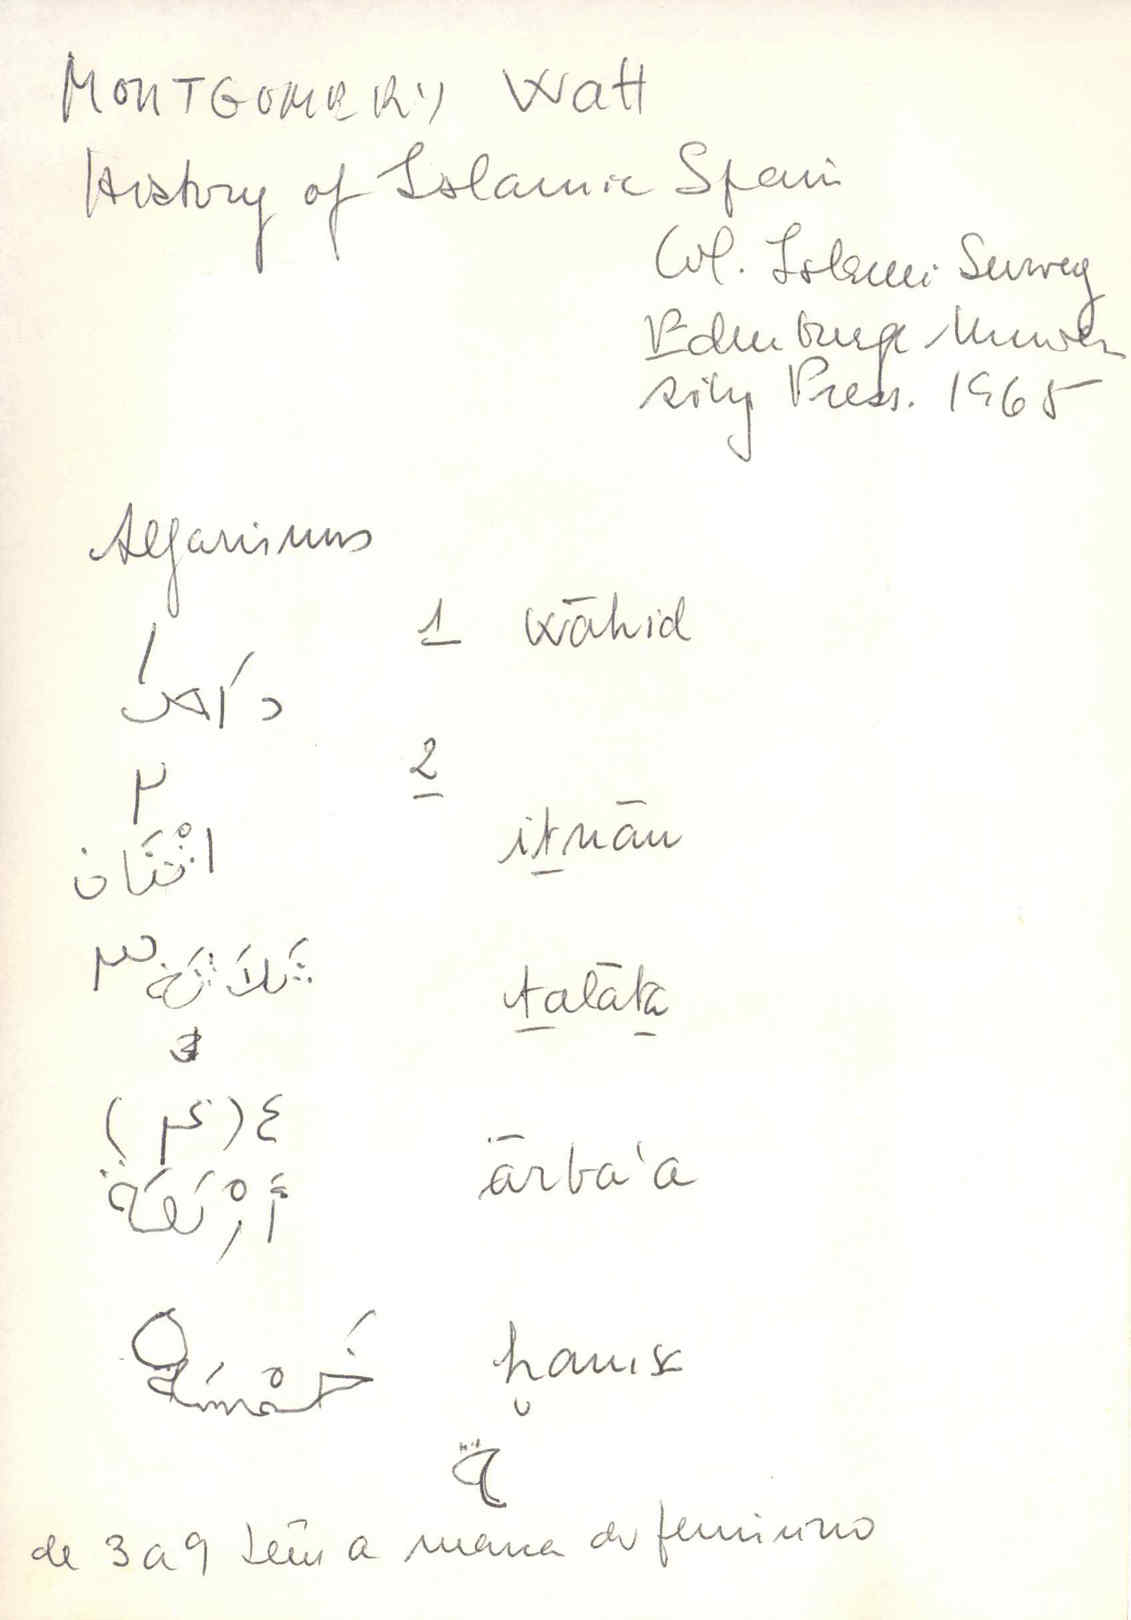 MONTGOMERY Watt
History of Islamic Spain
Col. Islamic Survey
Edenburge Univer
sity Press. 1965
Algarismos
١ 1 wāhid
وَاحد
٢ 2
اثْنَان iṯnān
٣ ثَلاَثَة ṯalāṯa
3
(۴) ٤
أَرْبَعَة ārba'a
خَمْسَة ḫams
ة
de 3 a 9 têm a marca do feminino